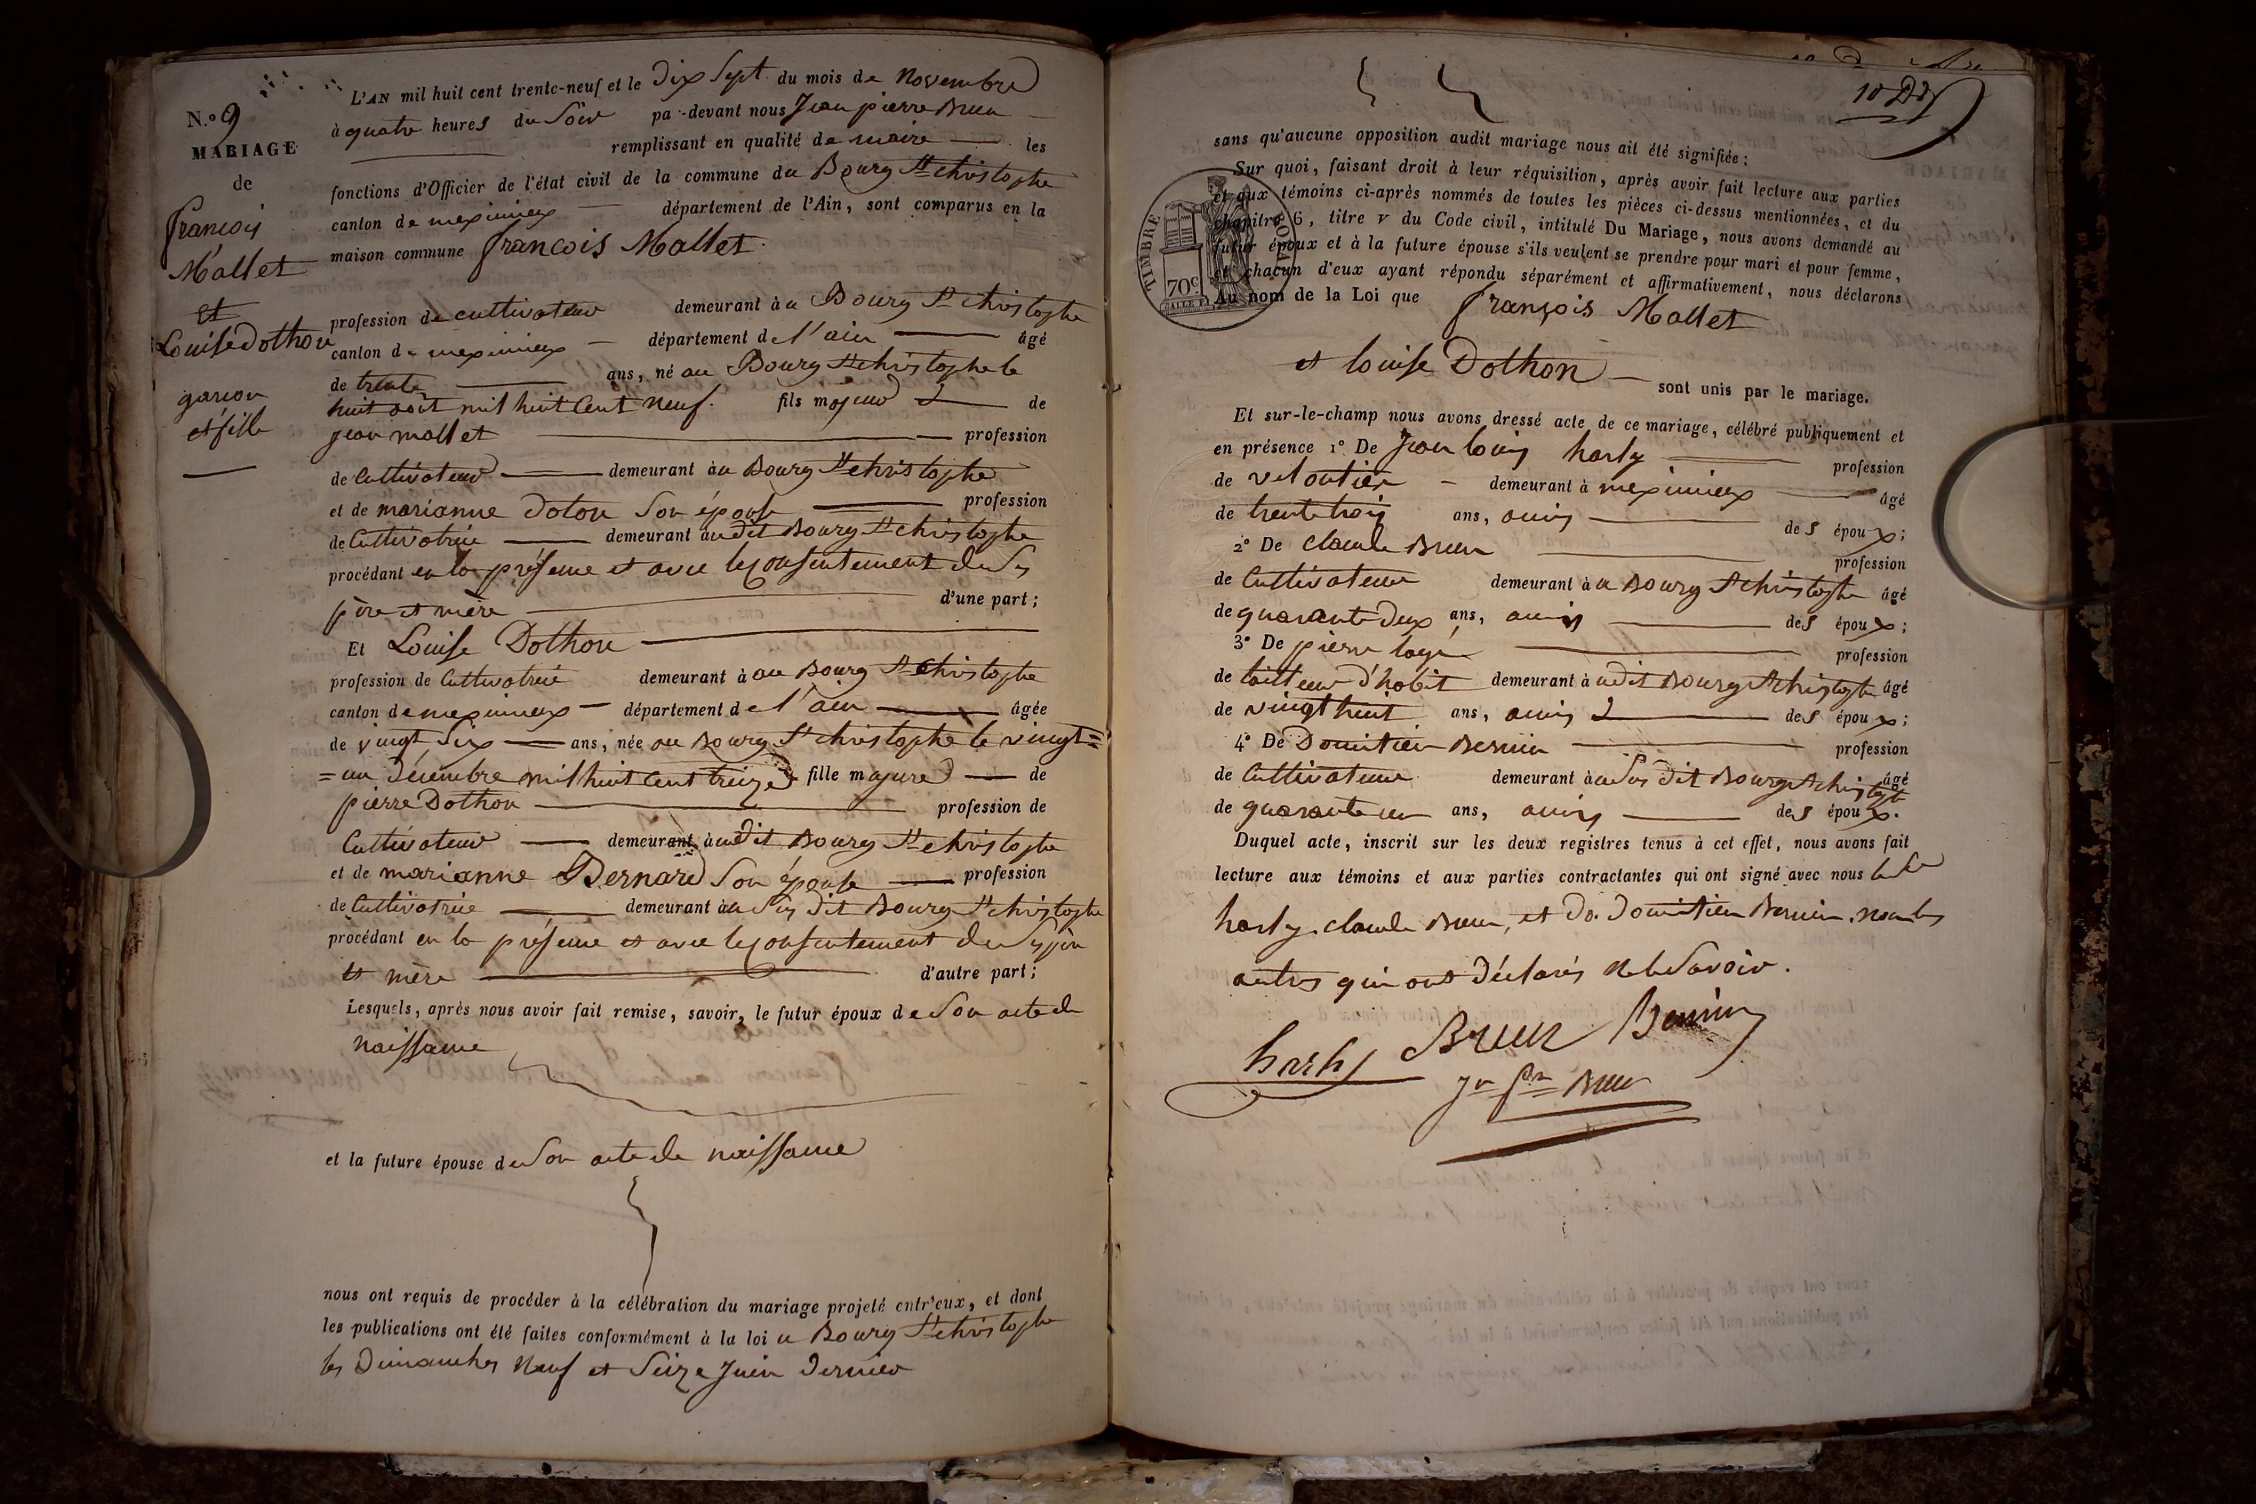 N.º 9
MARIAGE
de
françois
Mallet
et
Louise Dothon
garçon
et fille
L'AN mil huit cent trente-neuf et le dix Sept du mois de Novembre
à quatre heures du Soir par-devant nous Jean pierre Brun
remplissant en qualité de maire les
fonctions d'Officier de l'état civil de la commune du Bourg St christophe
canton de meximieux département de l'Ain, sont comparus en la
maison commune françois Mallet
profession de cultivateur demeurant à u Bourg St christophe
canton de meximieux département de l'ain âgé
de trente ans, né au Bourg St christophe le
huit août mil huit Cent neuf. fils majeur de
jean mallet profession
de Cultivateur demeurant à u Bourg St christophe
et de marianne doton Son épouse profession
de Cultivatrice demeurant audit Bourg St christophe
procédant en la présence et avec le consentement de Ses
père et mère d'une part;
Et Louise Dothon
profession de Cultivatrice demeurant à au Bourg St Christophe
canton de meximieux département de l'ain âgée
de vingt Six ans, née au Bourg St christophe le vingt=
=un décembre mil huit Cent treize fille majeure de
pierre Dothon profession de
Cultivateur demeurant à udit Bourg St christophe
et de marianne Bernard Son épouse profession
de Cultivatrice demeurant à u Sus dit Bourg St christophe
procédant en la présence et avec le consentement de Ses père
et mère d'autre part;
Lesquels, après nous avoir fait remise, savoir, le futur époux de Son acte de
naissance
et la future épouse de Son acte de naissance
nous ont requis de procéder à la célébration du mariage projeté entr'eux, et dont
les publications ont été faites conformément à la loi a Bourg St christophe
les Dimanches Neuf et Seize Juin dernier
10
sans qu'aucune opposition audit mariage nous ait été signifiée;
Sur quoi, faisant droit à leur réquisition, après avoir fait lecture aux parties
et aux témoins ci-après nommés de toutes les pièces ci-dessus mentionnées, et du
chapitre 6, titre v du Code civil, intitulé Du Mariage, nous avons demandé au
futur époux et à la future épouse s'ils veulent se prendre pour mari et pour femme,
et chacun d'eux ayant répondu séparément et affirmativement, nous déclarons
Au nom de la Loi que françois Mallet
TIMBRE ROYAL
70c
et louise Dothon sont unis par le mariage.
Et sur-le-champ nous avons dressé acte de ce mariage, célébré publiquement et
en présence 1º De Jean louis harly profession
de veloutier demeurant à meximieux âgé
de trente trois ans, amis des époux;
2º De claude Brun profession
de Cultivateur demeurant à u Bourg St christophe âgé
de quarante deux ans, amis des époux;
3º De pierre profession
de tailleur d'habit demeurant à udit Bourg St christophe âgé
de vingt huit ans, amis des époux;
4º De Domitien Bernin profession
de Cultivateur demeurant à u Sus dit Bourg St christophe âgé
de quarante un ans, amis des époux.
Duquel acte, inscrit sur les deux registres tenus à cet effet, nous avons fait
lecture aux témoins et aux parties contractantes qui ont signé avec nous
harly, claude Brun, et Domitien Bernin, non les
autres qui ont déclarés Ne le Savoir.
harly Brun Bernin
Jn Prre Brun